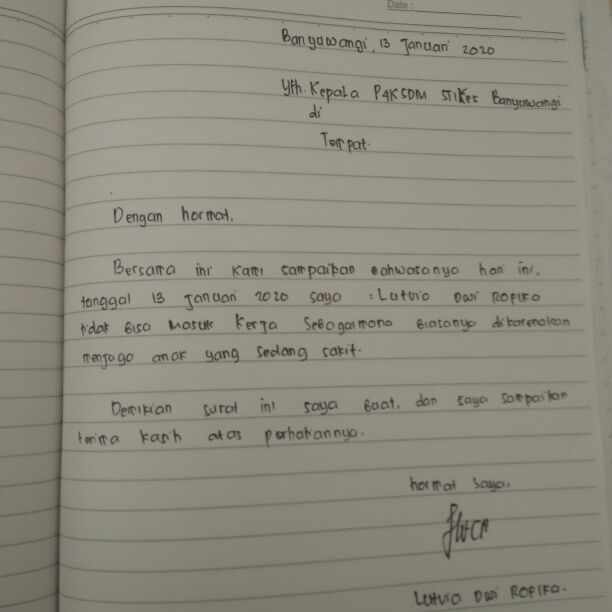 Date :
Banyuwangi, 13 Januari 2020
Yth. Kepala P4KSDM STIKes Banyuwangi
di
Tempat.
Dengan hormat,
Bersama ini kami sampaikan bahwasanya hari ini,
tanggal 13 Januari 2020 saya : Lutvia Dwi ROFIKA
tidak bisa masuk kerja sebagaimana biasanya dikarenakan
menjaga anak yang sedang sakit.
Demikian surat ini saya buat, dan saya sampaikan
terima kasih atas perhatiannya.
hormat saya,
Lutvia Dwi ROFIKA.